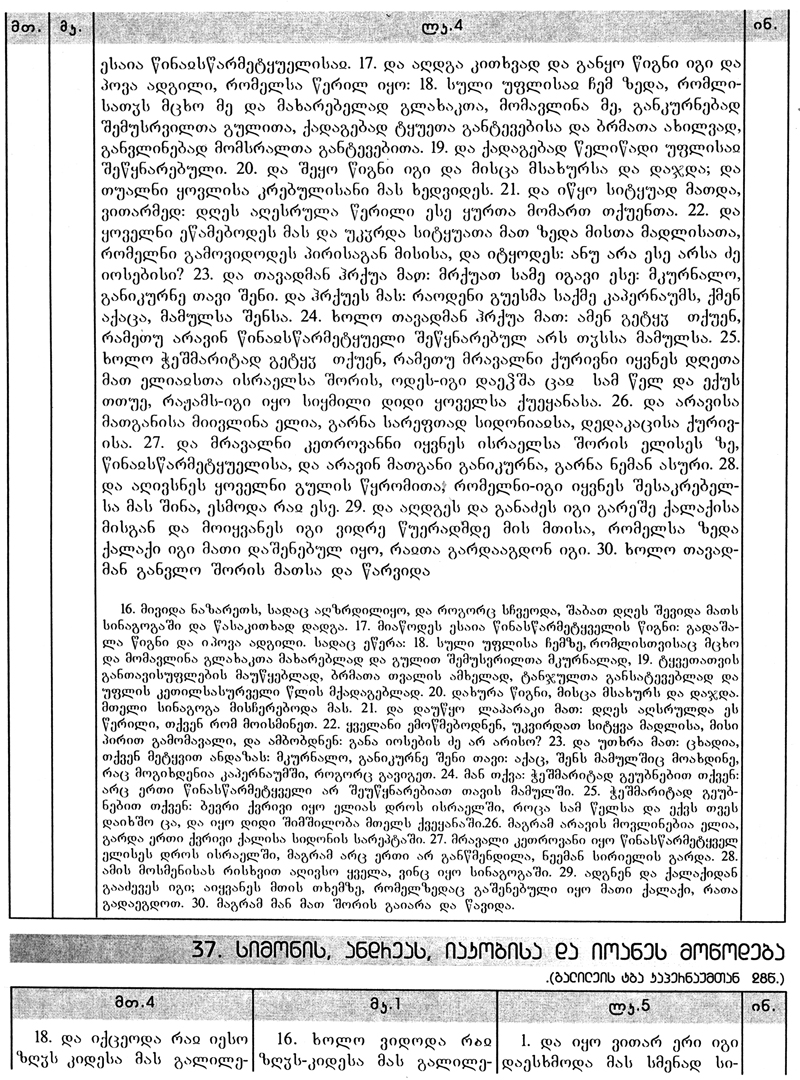 მთ. მკ. ლკ.4 ინ.
ესაია წინაჲსწარმეტყუელისაჲ. 17. და აღდგა კითხვად და განყო წიგნი იგი და
პოვა ადგილი, რომელსა წერილ იყო: 18. სული უფლისაჲ ჩემ ზედა, რომლი-
სათჳს მცხო მე და მახარებელად გლახაკთა, მომავლინა მე, განკურნებად
შემუსრვილთა გულითა, ქადაგებად ტყუეთა განტევებისა და ბრმათა ახილვად,
განვლინებად მომსრალთა განტევებითა. 19. და ქადაგებად წელიწადი უფლისაჲ
შეწყნარებული. 20. და შეყო წიგნი იგი და მისცა მსახურსა და დაჯდა; და
თუალნი ყოვლისა კრებულისანი მას ხედვიდეს. 21. და იწყო სიტყუად მათდა,
ვითარმედ: დღეს აღესრულა წერილი ესე ყურთა მომართ თქუენთა. 22. და
ყოველნი ეწამებოდეს მას და უკჳრდა სიტყუათა მათ ზედა მისთა მადლისათა,
რომელნი გამოვიდოდეს პირისაგან მისისა, და იტყოდეს: ანუ არა ესე არსა ძე
იოსებისი? 23. და თავადმან ჰრქუა მათ: მრქუათ სამე იგავი ესე: მკურნალო,
განიკურნე თავი შენი. და ჰრქუეს მას: რაოდენი გუესმა საქმე კაპერნაუმს, ქმენ
აქაცა, მამულსა შენსა. 24. ხოლო თავადმან ჰრქუა მათ: ამენ გეტყჳ თქუენ,
რამეთუ არავინ წინაჲსწარმეტყუელი შეწყნარებულ არს თჳსსა მამულსა. 25.
ხოლო ჭეშმარიტად გეტყჳ თქუენ, რამეთუ მრავალნი ქურივნი იყვნეს დღეთა
მათ ელიაჲსთა ისრაელსა შორის, ოდეს-იგი დაეჴშა ცაჲ სამ წელ და ექუს
თთუე, რაჟამს-იგი იყო სიყმილი დიდი ყოველსა ქუეყანასა. 26. და არავისა
მათგანისა მიივლინა ელია, გარნა სარეფთად სიდონიაჲსა, დედაკაცისა ქურივ-
ისა. 27. და მრავალნი კეთროვანნი იყვნეს ისრაელსა შორის ელისეს ზე,
წინაჲსწარმეტყუელისა, და არავინ მათგანი განიკურნა, გარნა ნემან ასური. 28.
და აღივსნეს ყოველნი გულის წყრომითა; რომელნი-იგი იყვნეს შესაკრებელ-
სა მას შინა, ესმოდა რაჲ ესე. 29. და აღდგეს და განაძეს იგი გარეშე ქალაქისა
მისგან და მოიყვანეს იგი ვიდრე წუერადმდე მის მთისა, რომელსა ზედა
ქალაქი იგი მათი დაშენებულ იყო, რაჲთა გარდააგდონ იგი. 30. ხოლო თავად-
მან განვლო შორის მათსა და წარვიდა
16. მივიდა ნაზარეთს, სადაც აღზრდილიყო, და როგორც სჩვეოდა, შაბათ დღეს შევიდა მათს
სინაგოგაში და წასაკითხად დადგა. 17. მიაწოდეს ესაია წინასწარმეტყველის წიგნი: გადაშა-
ლა წიგნი და იპოვა ადგილი. სადაც ეწერა: 18. სული უფლისა ჩემზე, რომლისთვისაც მცხო
და მომავლინა გლახაკთა მახარებლად და გულით შემუსვრილთა მკურნალად, 19. ტყვეთათვის
განთავისუფლების მაუწყებლად, ბრმათა თვალის ამხელად, ტანჯულთა განსატევებლად და
უფლის კეთილსასურველი წლის მქადაგებლად. 20. დახურა წიგნი, მისცა მსახურს და დაჯდა.
მთელი სინაგოგა მისჩერებოდა მას. 21. და დაუწყო ლაპარაკი მათ: დღეს აღსრულდა ეს
წერილი, თქვენ რომ მოისმინეთ. 22. ყველანი ემოწმებოდნენ, უკვირდათ სიტყვა მადლისა, მისი
პირით გამომავალი, და ამბობდნენ: განა იოსების ძე არ არისო? 23. და უთხრა მათ: ცხადია,
თქვენ მეტყვით ანდაზას: მკურნალო, განიკურნე შენი თავი: აქაც, შენს მამულშიც მოახდინე,
რაც მოგიხდენია კაპერნაუმში, როგორც გავიგეთ. 24. მან თქვა: ჭეშმარიტად გეუბნებით თქვენ:
არც ერთი წინასწარმეტყველი არ შეუწყნარებიათ თავის მამულში. 25. ჭეშმარიტად გეუბ-
ნებით თქვენ: ბევრი ქვრივი იყო ელიას დროს ისრაელში, როცა სამ წელსა და ექვს თვეს
დაიხშო ცა, და იყო დიდი შიმშილობა მთელს ქვეყანაში.26. მაგრამ არავის მოვლინებია ელია,
გარდა ერთი ქვრივი ქალისა სიდონის სარეპტაში. 27. მრავალი კეთროვანი იყო წინასწარმეტყველ
ელისეს დროს ისრაელში, მაგრამ არც ერთი არ განწმენდილა, ნეემან სირიელის გარდა. 28.
ამის მოსმენისას რისხვით აღივსო ყველა, ვინც იყო სინაგოგაში. 29. ადგნენ და ქალაქიდან
გააძევეს იგი; აიყვანეს მთის თხემზე, რომელზედაც გაშენებული იყო მათი ქალაქი, რათა
გადაეგდოთ. 30. მაგრამ მან მათ შორის გაიარა და წავიდა.
37. სიმონის, ანდრეას, იაკობისა და იოანეს მოწოდება
(გალილეის ტბა კაპერნაუმთან 28წ.)
მთ.4 მკ.1 ლკ.5 ინ.
18. და იქცეოდა რაჲ იესო 16. ხოლო ვიდოდა რაჲ 1. და იყო ვითარ ერი იგი
ზღჳს კიდესა მას გალილე- ზღჳს-კიდესა მას გალილე- დაესხმოდა მას სმენად სი-